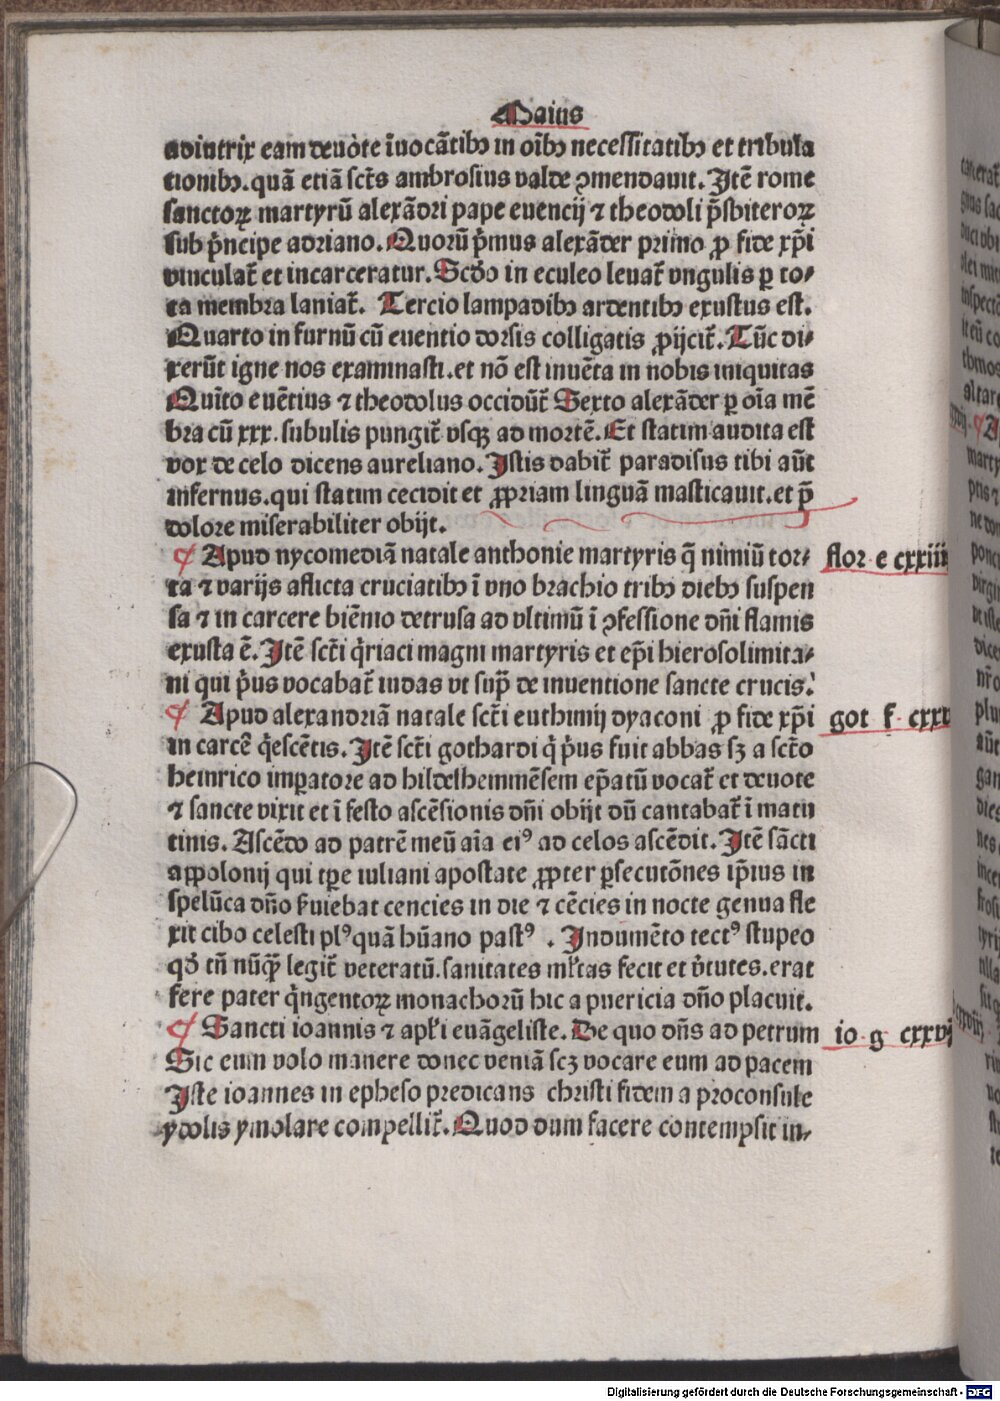 Maius
adiutrix eam deuote īuocātibꝫ in oībꝫ necessitatibꝫ et tribula
tionibꝫ. quā etiā sct̄s ambrosius valde ꝯmendauit. Itē rome
sanctoꝝ martyrū alexādri pape euencij ⁊ theodoli p̄sbiteroꝝ
sub p̄ncipe adriano. Quorū p̄mus alexāder primo ꝓ fide xp̄i
vinculat᷑ et incarceratur. Scd̄o in eculeo leuat᷑ vngulis ꝑ to⸗
ta membra laniat᷑. Tercio lampadibꝫ ardentibꝫ exustus est.
Quarto in furnū cū euentio dorsis colligatis ꝓijcit᷑. Tūc di⸗
xerūt igne nos examinasti. et nō est inuēta in nobis iniquitas
Quīto euētius ⁊ theodolus occidūt᷑ Sexto alexāder ꝑ oīa mē
bra cū xxx. subulis pungit᷑ vsqꝫ ad mortē. Et statim audita est
vox de celo dicens aureliano. Istis dabit᷑ paradisus tibi aūt
infernus. qui statim cecidit et ꝓpriam linguā masticauit. et p̄
dolore miserabiliter obijt.
¶ Apud nycomediā natale anthonie martyris q̄ nimiū tor⸗
flor e cxxiiij
ta ⁊ varijs aflicta cruciatibꝫ ī vno brachio tribꝫ diebꝫ suspen
sa ⁊ in carcere biēnio detrusa ad vltimū ī ꝯfessione dn̄i flamis
exusta ē. Itē scti q̄riaci magni martyris et ep̄i hierosolimita⸗
ni qui p̄us vocabat᷑ iudas vt sup̄ de inuentione sancte crucis.
¶ Apud alexandriā natale sct̄i euthimij dyaconi ꝓ fide xp̄i
got f cxxv
in carcē q̄escētis. Itē sct̄i gothardi q̄ p̄us fuit abbas sꝫ a sct̄o
heinrico imꝑatore ad hildelhemmēsem ep̄atū vocat᷑ et deuote
⁊ sancte vixit et ī festo ascēsionis dn̄i obijt dū cantabat᷑ ī matu
tinis. Ascēdo ad patrē meū aīa eiꝰ ad celos ascēdit. Itē sācti
appolonij qui tp̄e iuliani apostate ꝓpter ꝑsecutōnes ip̄ius in
spelūca dn̄o ẜuiebat cencies in die ⁊ cēcies in nocte genua fle
xit cibo celesti plꝰ quā hūano pastꝰ. Indumēto tectꝰ stupeo
qd̄ tn̄ nūqꝫ legit᷑ veteratū. sanitates ml̄tas fecit et v̄tutes. erat
fere pater q̄ngentoꝝ monachorū hic a puericia dn̄o placuit.
¶ Sancti ioannis ⁊ apl̄i euāgeliste. De quo dn̄s ad petrum
io g cxxvj
Sic eum volo manere donec veniā scꝫ vocare eum ad pacem
Iste ioannes in epheso predicans christi fidem a proconsule
ydolis ymolare compellit᷑. Quod dum facere contempsit in⸗
Digitalisierung gefördert durch die Deutsche Forschungsgemeinschaft - DFG